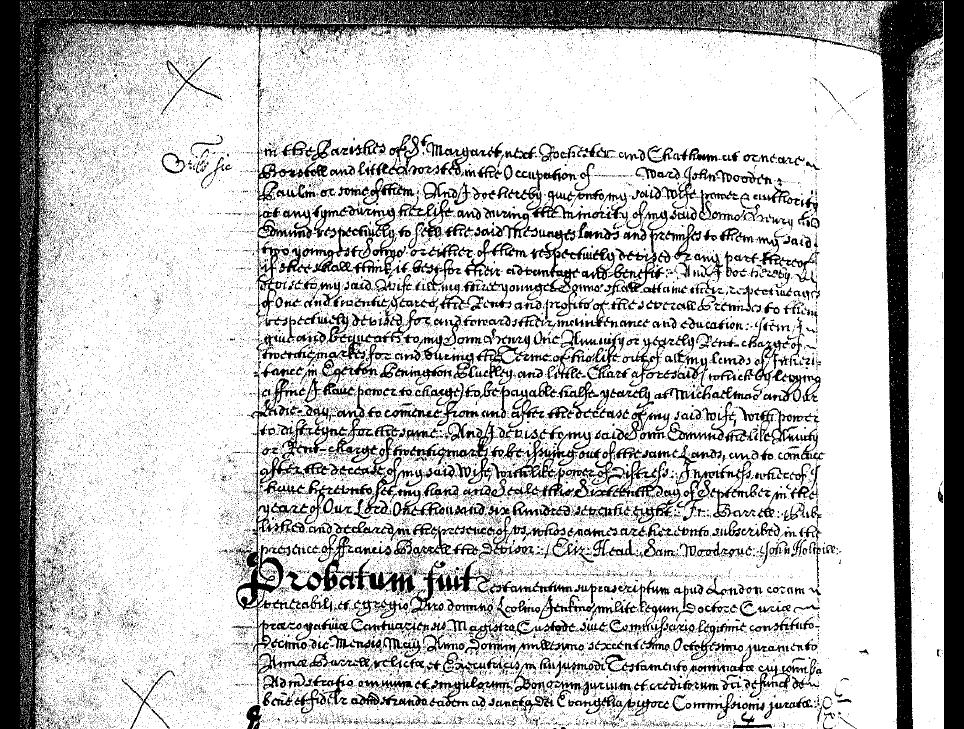 in the Parishes of St Margaret next Rochester and Chatham at or neare
Borstoll and little Borsted in the Occupation of Ward John Wooden
Paulin or some of them: And I doe hereby give unto my said Wife power & authority
at any tyme during her life and during the minority of my said Sonns Henry and
Edmund respectively to sell the said Messuages lands and premises to them my said
two youngest Sonns or either of them respectively devised or any part thereof
if shee shall think it best for their advantage and benefit: And I doe hereby
devise to my said Wife till my three younger Sonns shall attaine their respective ages
of One and twentie yeares, the Rents and profits of the severall Premises to them
respectively devised for and towards their maintenance and education: Item, I
give and bequeath to my Sonn Henry One Annuity or yearely Rent-charge of
twentie markes for and during the Terme of his life out of all my lands of Inheri-
tance in Egerton Pluckley and little Chart aforesaid (which by levying
a ffine I have power to charge) to be payable halfe-yearely at Michaelmas and Our
Ladie-day, and to comence from and after the decease of my said Wife, With power
to distreyne for the same: And I devise to my said Sonn Edmund the like Annuity
or Rent-charge of twentie marks to be issuing out of the same Lands, and to comence
after the decease of my said Wife, with like power of Distress: In witness whereof I
have hereunto set my hand and Seale this Sixteenth day of September in the
yeare of Our Lord One thousand six hundred seventie eight. Fr: Barrell: Pub-
lished and declared in the presence of us, whose names are hereunto subscribed in the
presence of ffrancis Barrell the Devisor: Eliz: Head. Sam: Woodroue. John
Probatum fuit Testamentum suprascriptum apud London coram
venerabili et egregio Viro domino Leolino Jenkins milite legum Doctore Curiæ
prærogativæ Cantuariensis Magistro Custode sive Commissario legitime constituto
decimo die Mensis Maij Anno Domini millesimo sexcentesimo Octogesimo juramento
Annæ Barrell relictæ et Executricis in hujusmodi Testamento nominatæ cui comissa
Administratio omnium et singulorum Bonorum jurium et creditorum dicti defuncti de
bene et fidelr administrando eadem ad sancta Dei Evangelia vigore Commissionis juratæ